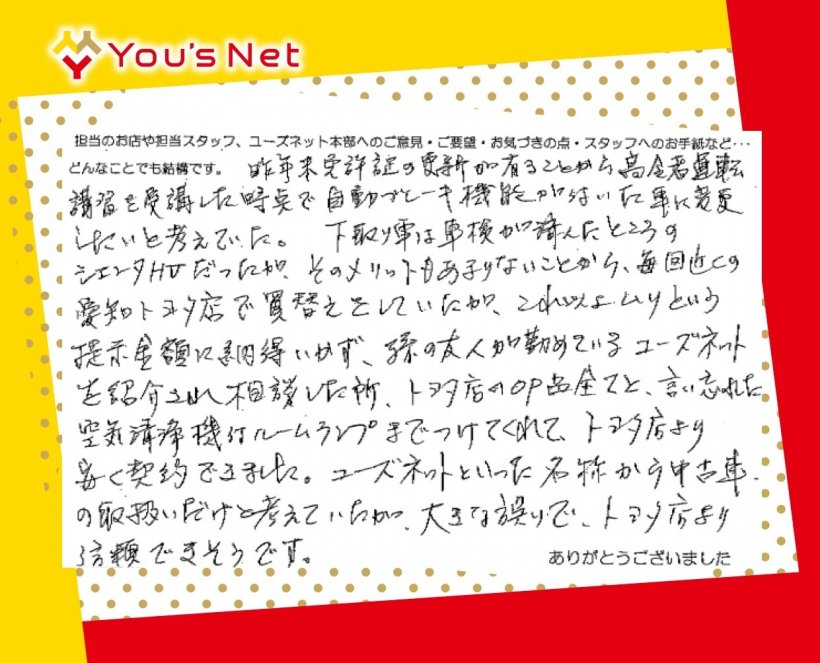 You's Net
担当のお店や担当スタッフ、ユーズネット本部へのご意見・ご要望・お気づきの点・スタッフへのお手紙など…
どんなことでも結構です。 昨年末免許証の更新が有ることから高令者運転
講習を受講した時点で自動ブレーキ機能が付いた車に変更
したいと考えていた。 下取り車は車検が済んだところの
シエンタHVだったが、そのメリットもあまりないことから、毎回近くの
愛知トヨタ店で買替えをしていたが、これ以上ムリという
提示金額に納得いかず、孫の友人が勤めているユーズネット
を紹介され相談した所、トヨタ店のOP品全てと、言い忘れた
空気清浄機付ルームランプまでつけてくれて、トヨタ店より
安く契約できました。ユーズネットといった名称から中古車
の取扱いだけと考えていたが、大きな誤りで、トヨタ店より
信頼できそうです。
ありがとうございました